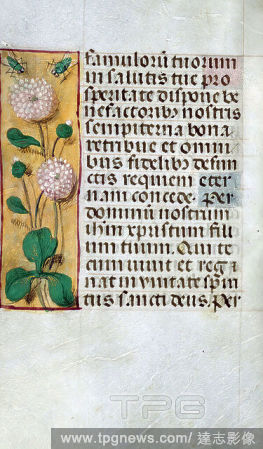 famuloru͂ tuorum
in salutis tue pro
speritate dispone be
nefactoribus nostris
sempiterna bona
retribue et omni
bus fidelib⁹ defun
ctis requiem eter
nam concede. per
dominu͂ nostrum
ihm xpristum fili
um tuum. Qui te
cum uiuit et reg
nat in vnitate spiri
tus sancti deus, Per
TPG
www.tpgnews.com/ 達志影像